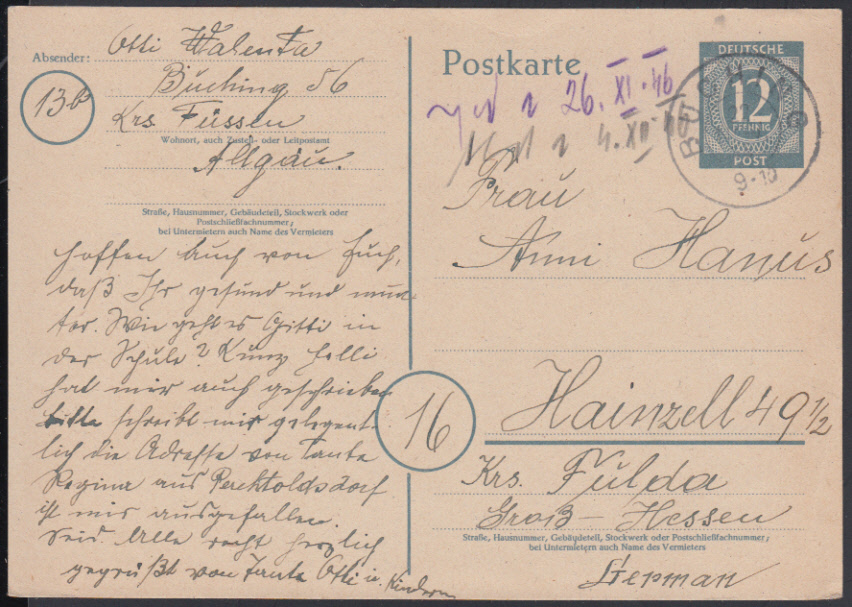 Absender: Otti Walenta
13b
Büching 56
Krs. Füssen
Wohnort, auch Zustell- oder Leitpostamt
Allgäu.
Straße, Hausnummer, Gebäudeteil, Stockwerk oder
Postschließfachnummer;
bei Untermietern auch Name des Vermieters
hoffen auch von Euch,
daß Ihr gesund und mun-
ter. Wie geht es Gitti in
der Schule?
hat mir auch geschrieben
bitte schreibt mir gelegent-
lich die Adresse von Tante
Regina aus Perchtoldsdorf
ist mir ausgefallen.
Seid Alle recht herzlich
gegrüßt von Tante Otti u. Kindern
Postkarte
DEUTSCHE
12
PFENNIG
POST
BUCHING
9-10
26. XI. 46
4. XII
Frau
Anni Hanus
16
Hainzell 49 1/2
Krs. Fulda
Groß-Hessen
Straße, Hausnummer, Gebäudeteil, Stockwerk oder Postschließfachnummer;
bei Untermietern auch Name des Vermieters
German